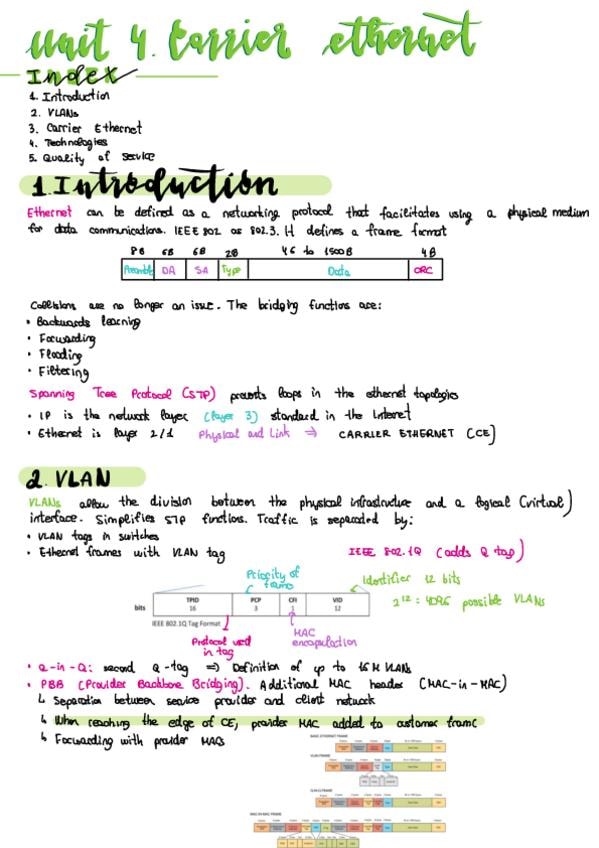 Unit 4. Carrier ethernet
Index
1. Introduction
2. VLANs
3. Carrier Ethernet
4. Technologies
5. Quality of service
1. Introduction
Ethernet can be defined as a networking protocol that facilitates using a physical medium
for data communications. IEEE 802 as 802.3. It defines a frame format
8B 6B 6B 2B 46 to 1500B 4B
Preamble DA SA Type Data CRC
Collisions are no longer an issue. The bridging functions are:
• Backwards learning
• Forwarding
• Flooding
• Filtering
Spanning Tree Protocol (STP) prevents loops in the ethernet topologies
• IP is the network layer (layer 3) standard in the Internet
• Ethernet is layer 2/1 Physical and Link ⇒ CARRIER ETHERNET (CE)
2. VLAN
VLANs allow the division between the physical infrastructure and a logical (virtual)
interface. Simplifies STP functions. Traffic is separated by:
• VLAN tags in switches
• Ethernet frames with VLAN tag IEEE 802.1Q (adds Q tag)
Priority of frame
Identifier 12 bits
2^12 = 4096 possible VLANs
TPID PCP CFI VID
bits 16 3 1 12
IEEE 802.1Q Tag Format
Protocol used in tag
MAC encapsulation
• Q-in-Q: second Q-tag ⇒ Definition of up to 16M VLANs
• PBB (Provider Backbone Bridging). Additional MAC header (MAC-in-MAC)
↳ Separation between service provider and client network
↳ When reaching the edge of CE, provider MAC added to customer frame
↳ Forwarding with provider MACs
BASIC ETHERNET FRAME
VLAN FRAME
Q-IN-Q FRAME
MAC-IN-MAC FRAME